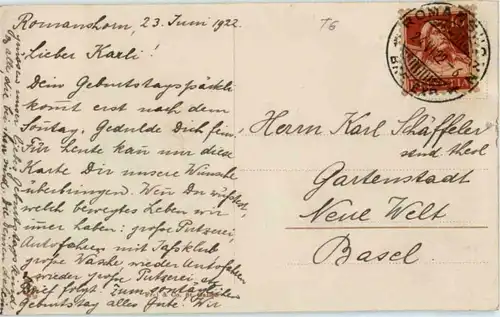 Romanshorn, 23. Juni 1922.
TG
Lieber Karli!
Dein Geburtstagspäckli
kommt erst nach dem
Sontag. Gedulde Dich fein.
Für heute kan nur diese
Karte Dir unsere Wünsche
überbringen. Wen Du wüsstest,
welch bewegtes Leben wir
imer haben: große Putzerei,
Autofahren mit
große Wäsche wieder Autofahren
wieder große Putzerei, etc
Brief folgt. Zum sontäglichen
Geburtstag alles Gute. Wir
ROMANSHORN
Herrn Karl Schäffeler
stud theol
Gartenstadt
Neue Welt
Basel.